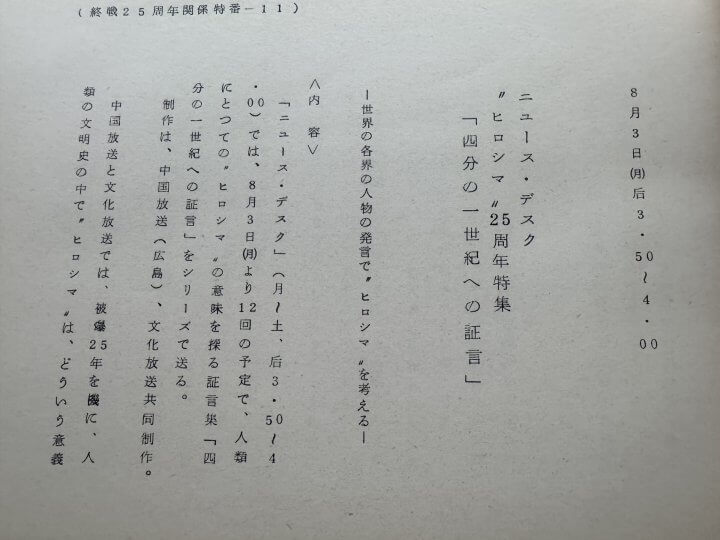 (終戦25周年関係特番－11)
8月3日(月)后3・50〜4・00
ニュース・デスク
〃ヒロシマ〃25周年特集
「四分の一世紀への証言」
ー世界の各界の人物の発言で〃ヒロシマ〃を考えるー
＜内容＞
「ニュース・デスク」(月〜土、后3・50〜4
・00)では、8月3日(月)より12回の予定で、人類
にとつての〃ヒロシマ〃の意味を探る証言集「四
分の一世紀への証言」をシリーズで送る。
制作は、中国放送(広島)、文化放送共同制作。
中国放送と文化放送では、被爆25年を機に、人
類の文明史の中で〃ヒロシマ〃は、どういう意義